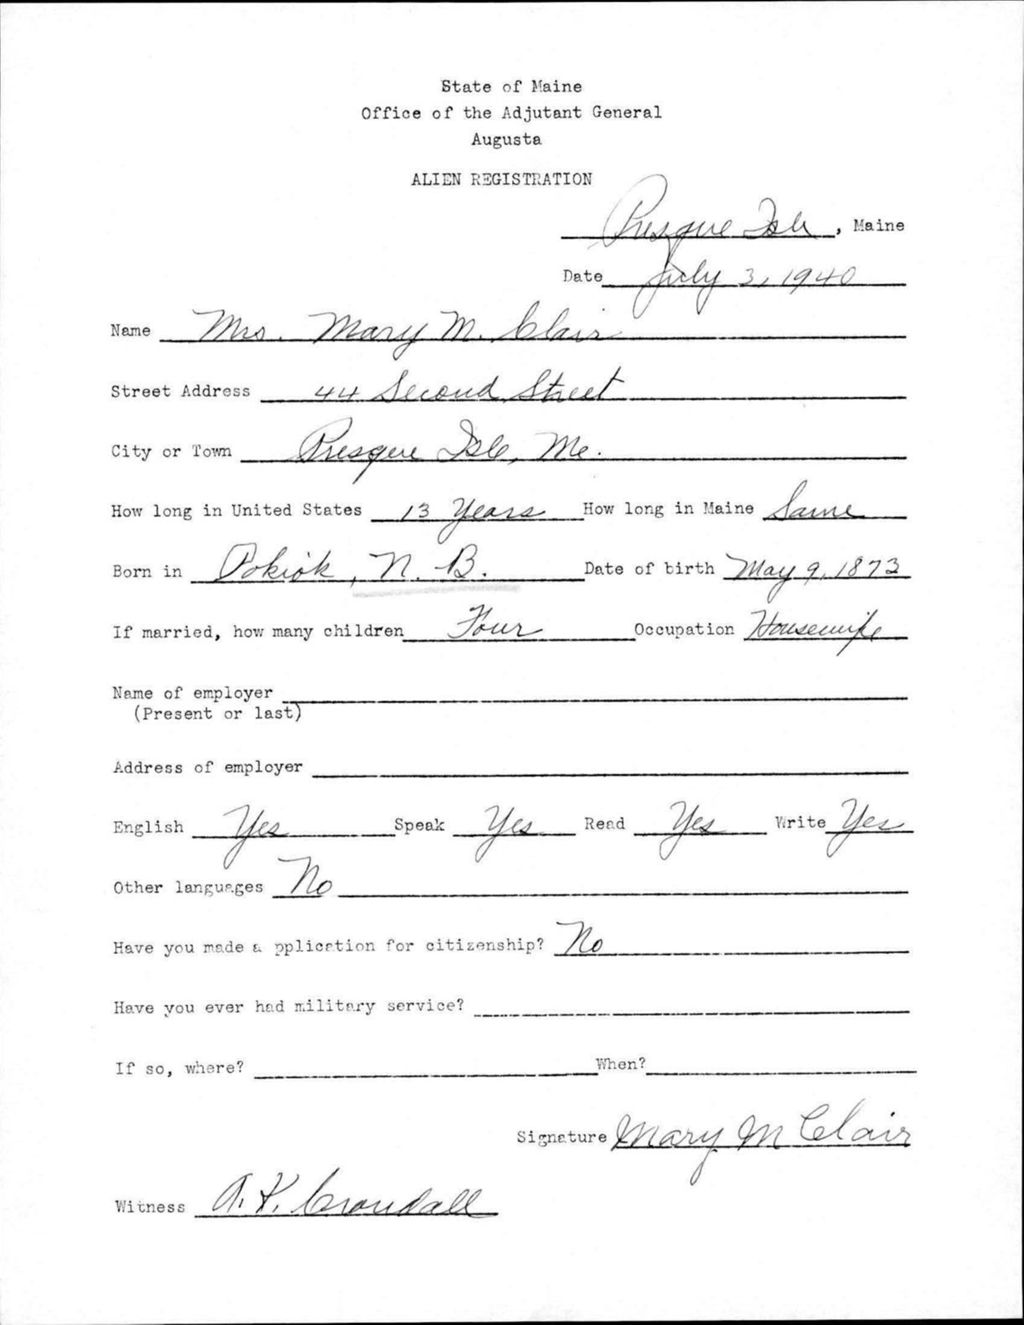 State of Maine
Office of the Adjutant General
Augusta
ALIEN REGISTRATION
Presque Isle, Maine
Date July 3, 1940
Name Mrs. Mary M. Clair
Street Address 44 Second Street
City or Town Presque Isle, Me.
How long in United States 13 Years How long in Maine Same
Born in Pokiok, N. B. Date of birth May 9, 1873
If married, how many children Four Occupation Housewife
Name of employer
(Present or last)
Address of employer
English Yes Speak Yes Read Yes Write Yes
Other languages No
Have you made a pplication for citizenship? No
Have you ever had military service?
If so, where? When?
Signature Mary M Clair
Witness A. K. Crandall